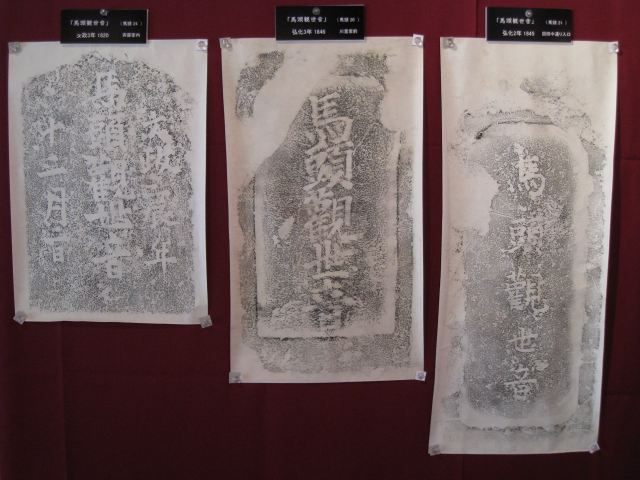 「馬頭観世音」 (馬頭 24)
文政3年 1820 斉藤家内
「馬頭観世音」 (馬頭 20)
弘化3年 1846 川置家前
「馬頭観世音」 (馬頭 21)
弘化2年 1845
馬頭觀世音
十二月吉日
馬頭觀世音
馬頭觀世音